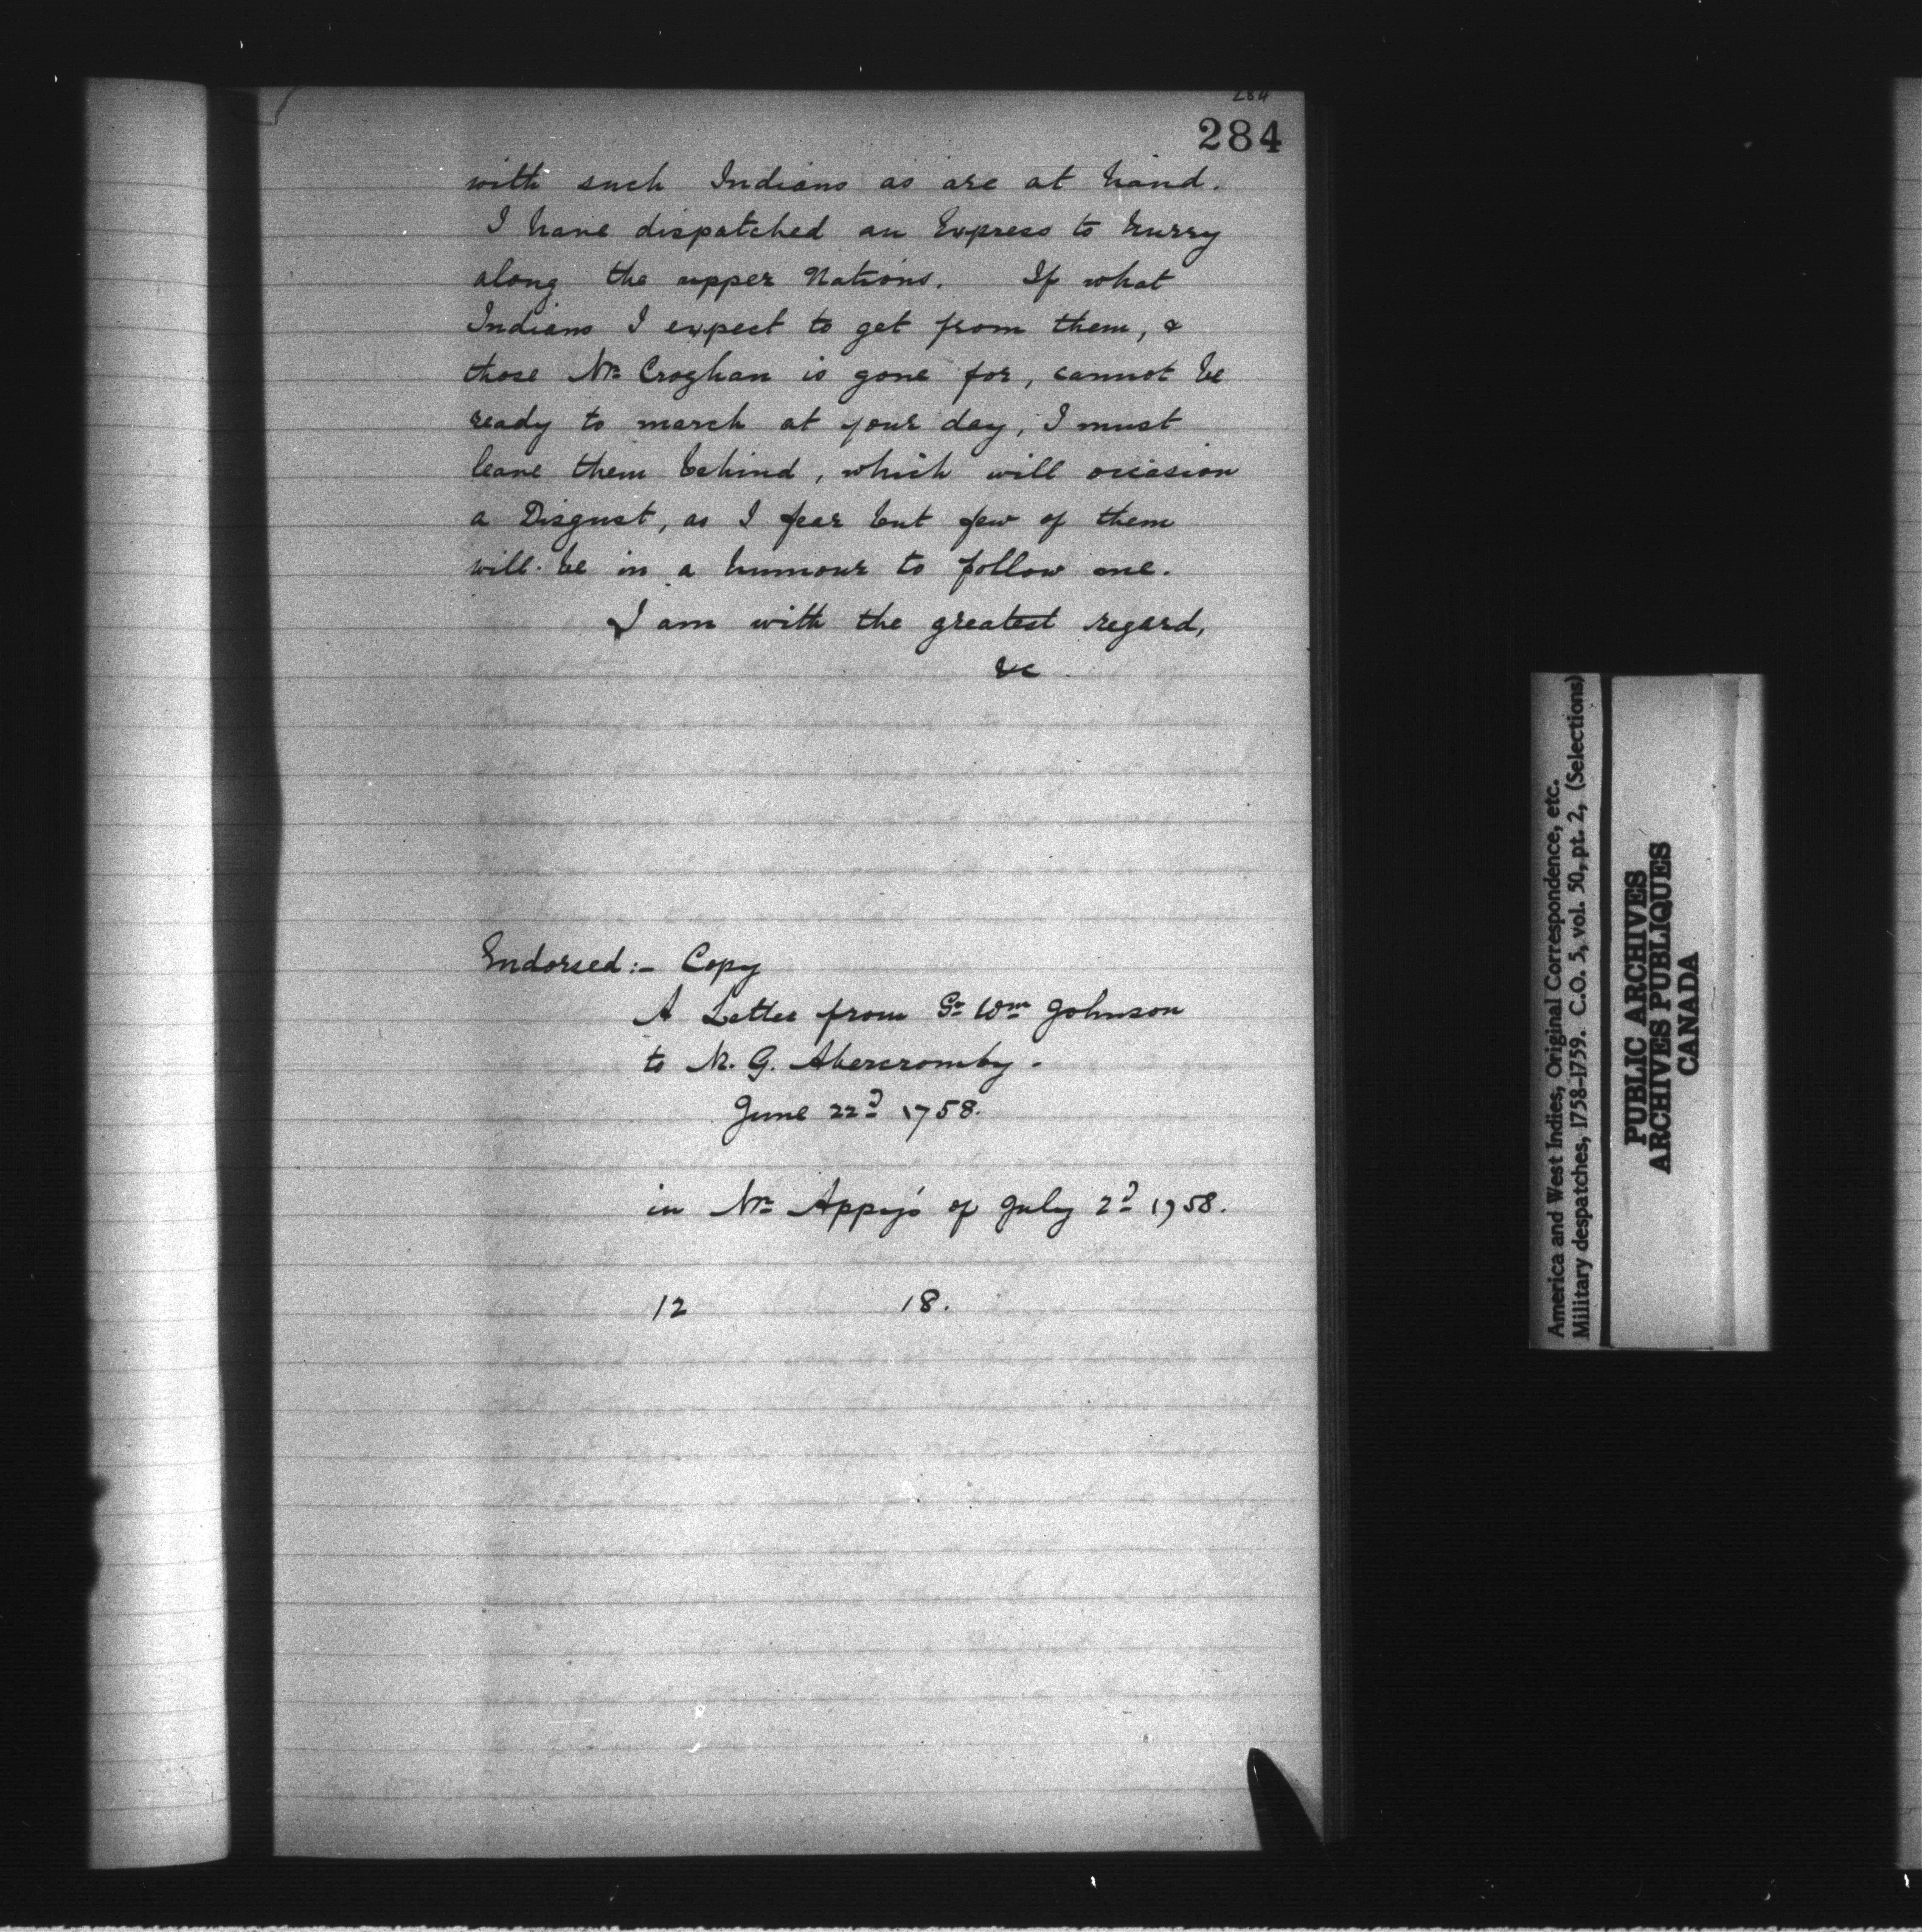 284
284
with such Indians as are at hand.
I have dispatched an Express to hurry
along the upper Nations. If what
Indians I expect to get from them, &
those Mr. Croghan is gone for, cannot be
ready to march at your day, I must
leave them behind, which will occasion
a Disgust, as I fear but few of them
will be in a humour to follow me.
I am with the greatest regard,
&c
Endorsed:- Copy
A Letter from Sr. Wm. Johnson
to M. G. Abercromby.
June 22d 1758.
in Mr. Appy's of July 2d 1758.
12 18.
America and West Indies, Original Correspondence, etc.
Military despatches, 1758-1759. C.O. 5, vol. 50, pt. 2, (Selections)
PUBLIC ARCHIVES
ARCHIVES PUBLIQUES
CANADA